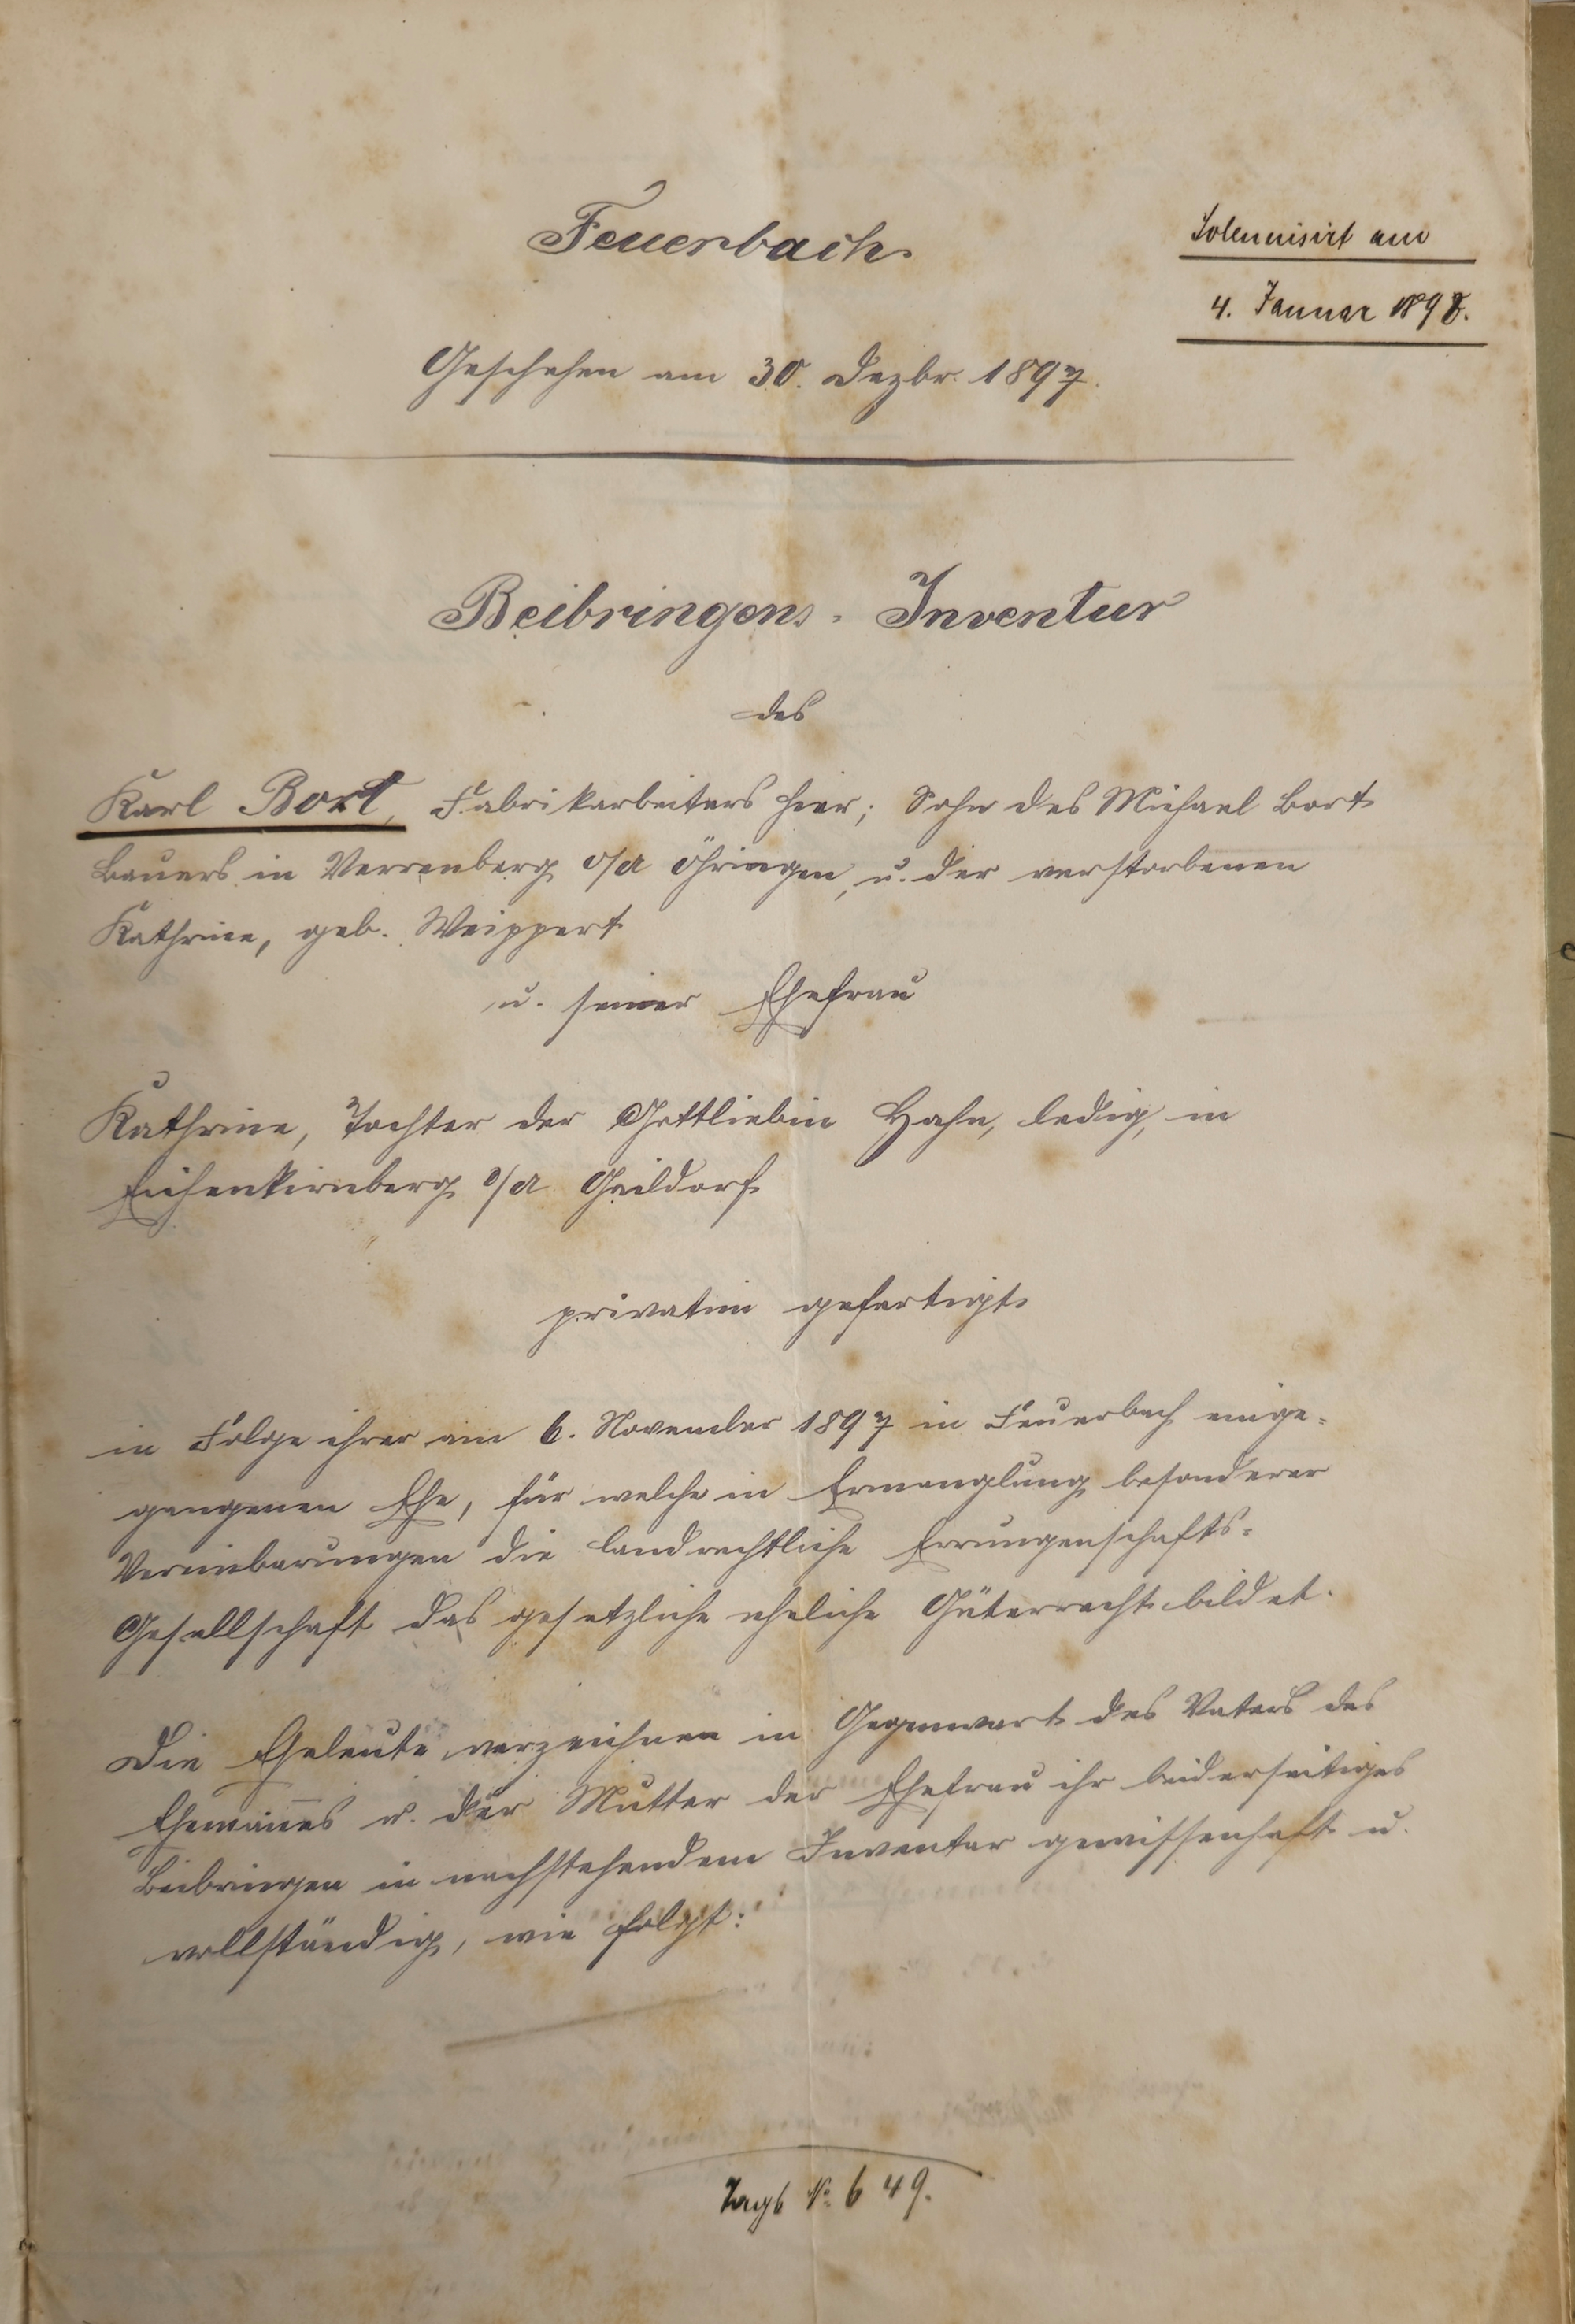 Feuerbach.
Solemnisirt am
4. Januar 1898.
Geschehen am 30. Dezbr. 1897.
Beibringens-Inventur
des
Karl Bort, Fabrikarbeiters hier; Sohn des Michael Bort
Bauers in Verrenberg O/A Öhringen, u. der verstorbenen
Kathrine, geb. Weippert
u. seiner Ehefrau
Kathrine, Tochter der Gottliebin Hahn, ledig, in
Eichenkirnberg O/A Gaildorf
privatim gefertigt
in Folge ihrer am 6. November 1897 in Feuerbach einge-
gangenen Ehe, für welche in Ermanglung besonderer
Vereinbarungen die landrechtliche Errungenschafts-
Gesellschaft das gesetzliche eheliche Güterrecht bildet.
Die Eheleute verzeichnen in Gegenwart des Vaters des
Ehemannes u. der Mutter der Ehefrau ihr beiderseitiges
Beibringen in nachstehendem Inventar gewissenhaft u.
vollständig, wie folgt:
Tagb № 649.